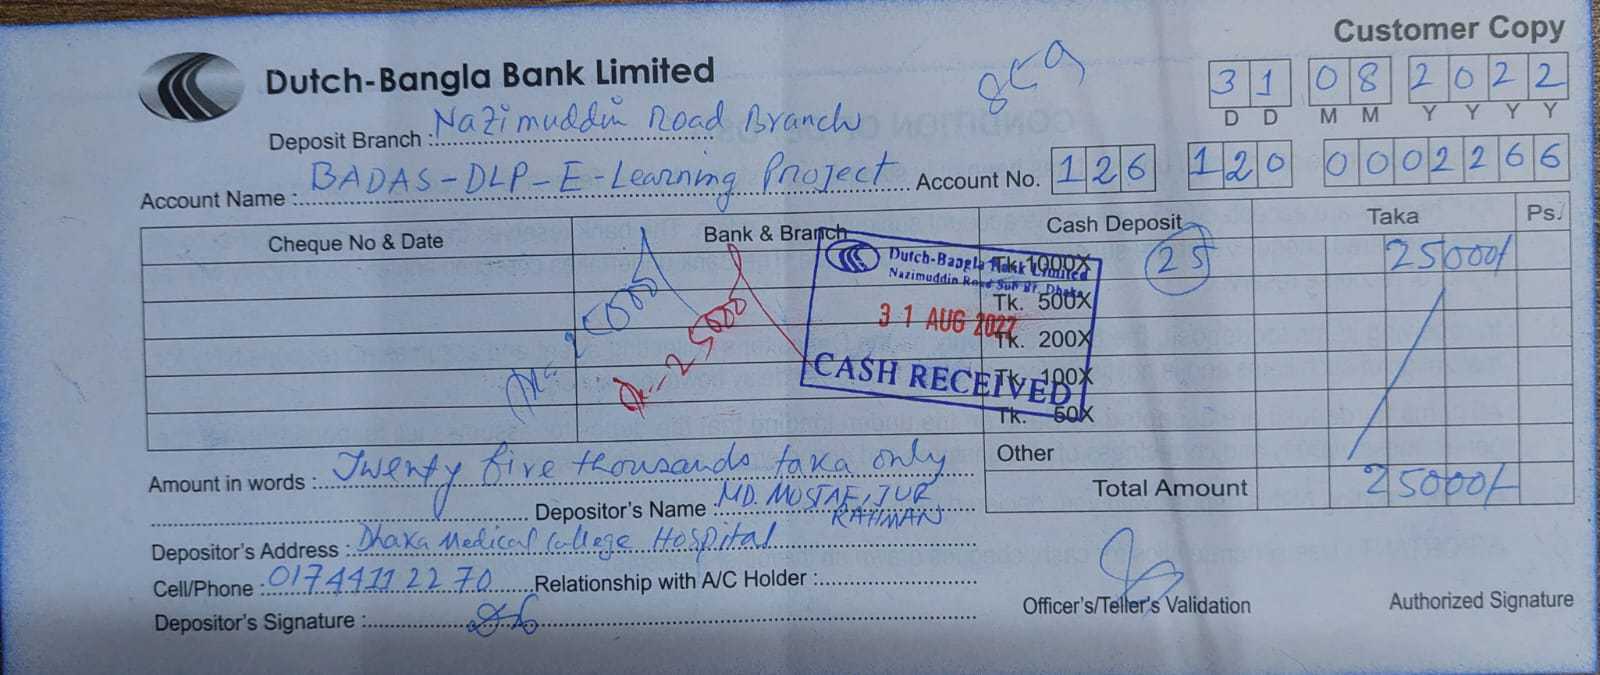 Customer Copy
Dutch-Bangla Bank Limited
31 08 2022
D D M M Y Y Y Y
Deposit Branch : Nazimuddin Road Branch
Account Name : BADAS-DLP-E-Learning Project Account No. 126 120 0002266
Cheque No & Date Bank & Branch Cash Deposit Taka Ps.
Tk. 1000X 25 25000/
Tk. 500X
Tk. 200X
Tk. 100X
Tk. 50X
Other
Total Amount 25000/-
Dutch-Bangla Bank Limited
Nazimuddin Road Sub Br. Dhaka
31 AUG 2022
CASH RECEIVED
25000/
25000/
Amount in words : Twenty five thousands taka only
Depositor's Name : MD. MUSTAFIJUR
RAHMAN
Depositor's Address : Dhaka Medical College Hospital
Cell/Phone : 01744112270 Relationship with A/C Holder :
Depositor's Signature :
Officer's/Teller's Validation Authorized Signature